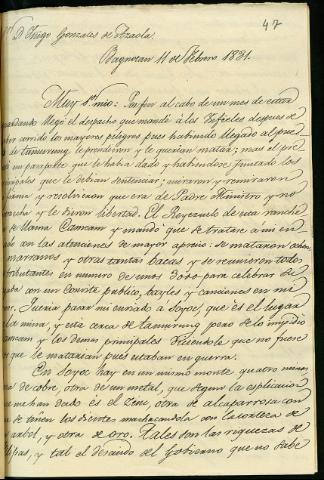 47
Sr. D. Iñigo Gonzales de Azaola.
Bagnotan 11 de Febrero 1831.
Muy Sr. mio: Por fin al cabo de un mes de
llegó el despacho que mandé á los Infieles despues de
corrido los mayores peligros pues habiendo llegado al pueblo
de tamurung le prendieron y le querian matar; mas él pre
un papel que le habia dado y habiendose juntado los
principales que le debian sentenciar; miraron y remiraron
y resolvieron que era de Padre Ministro y no
y le dieron libertad. El Reyezuelo de esa ranche
se llama Camcam y mandó que se tratase á mi en
con las atenciones de mayor aprecio: se mataron ochen
marranos y otras tantas bacas y se reunieron todos
tributantes en numero de unos 3000 para celebrar de
con un convite publico, bayles y canciones en mi
Queria pasar mi enviado á Soyoc, que es el lugar
la mina, y esta cerca de tamurung pero se lo impidio
Camcam y los demas principales diciendole que no fuese
que le matarian pues estaban en guerra.
En Soyoc hay en un mismo monte quatro minas
de cobre, otra de un metal, que segun la esplicacion
me han dado es el Zinc, otra de alcaparrosa con
se tiñen los dientes machacandola con la corteza de
arbol, y otra de oro. Tales son las riquezas de
y tal el descuido del Gobierno que no sabe